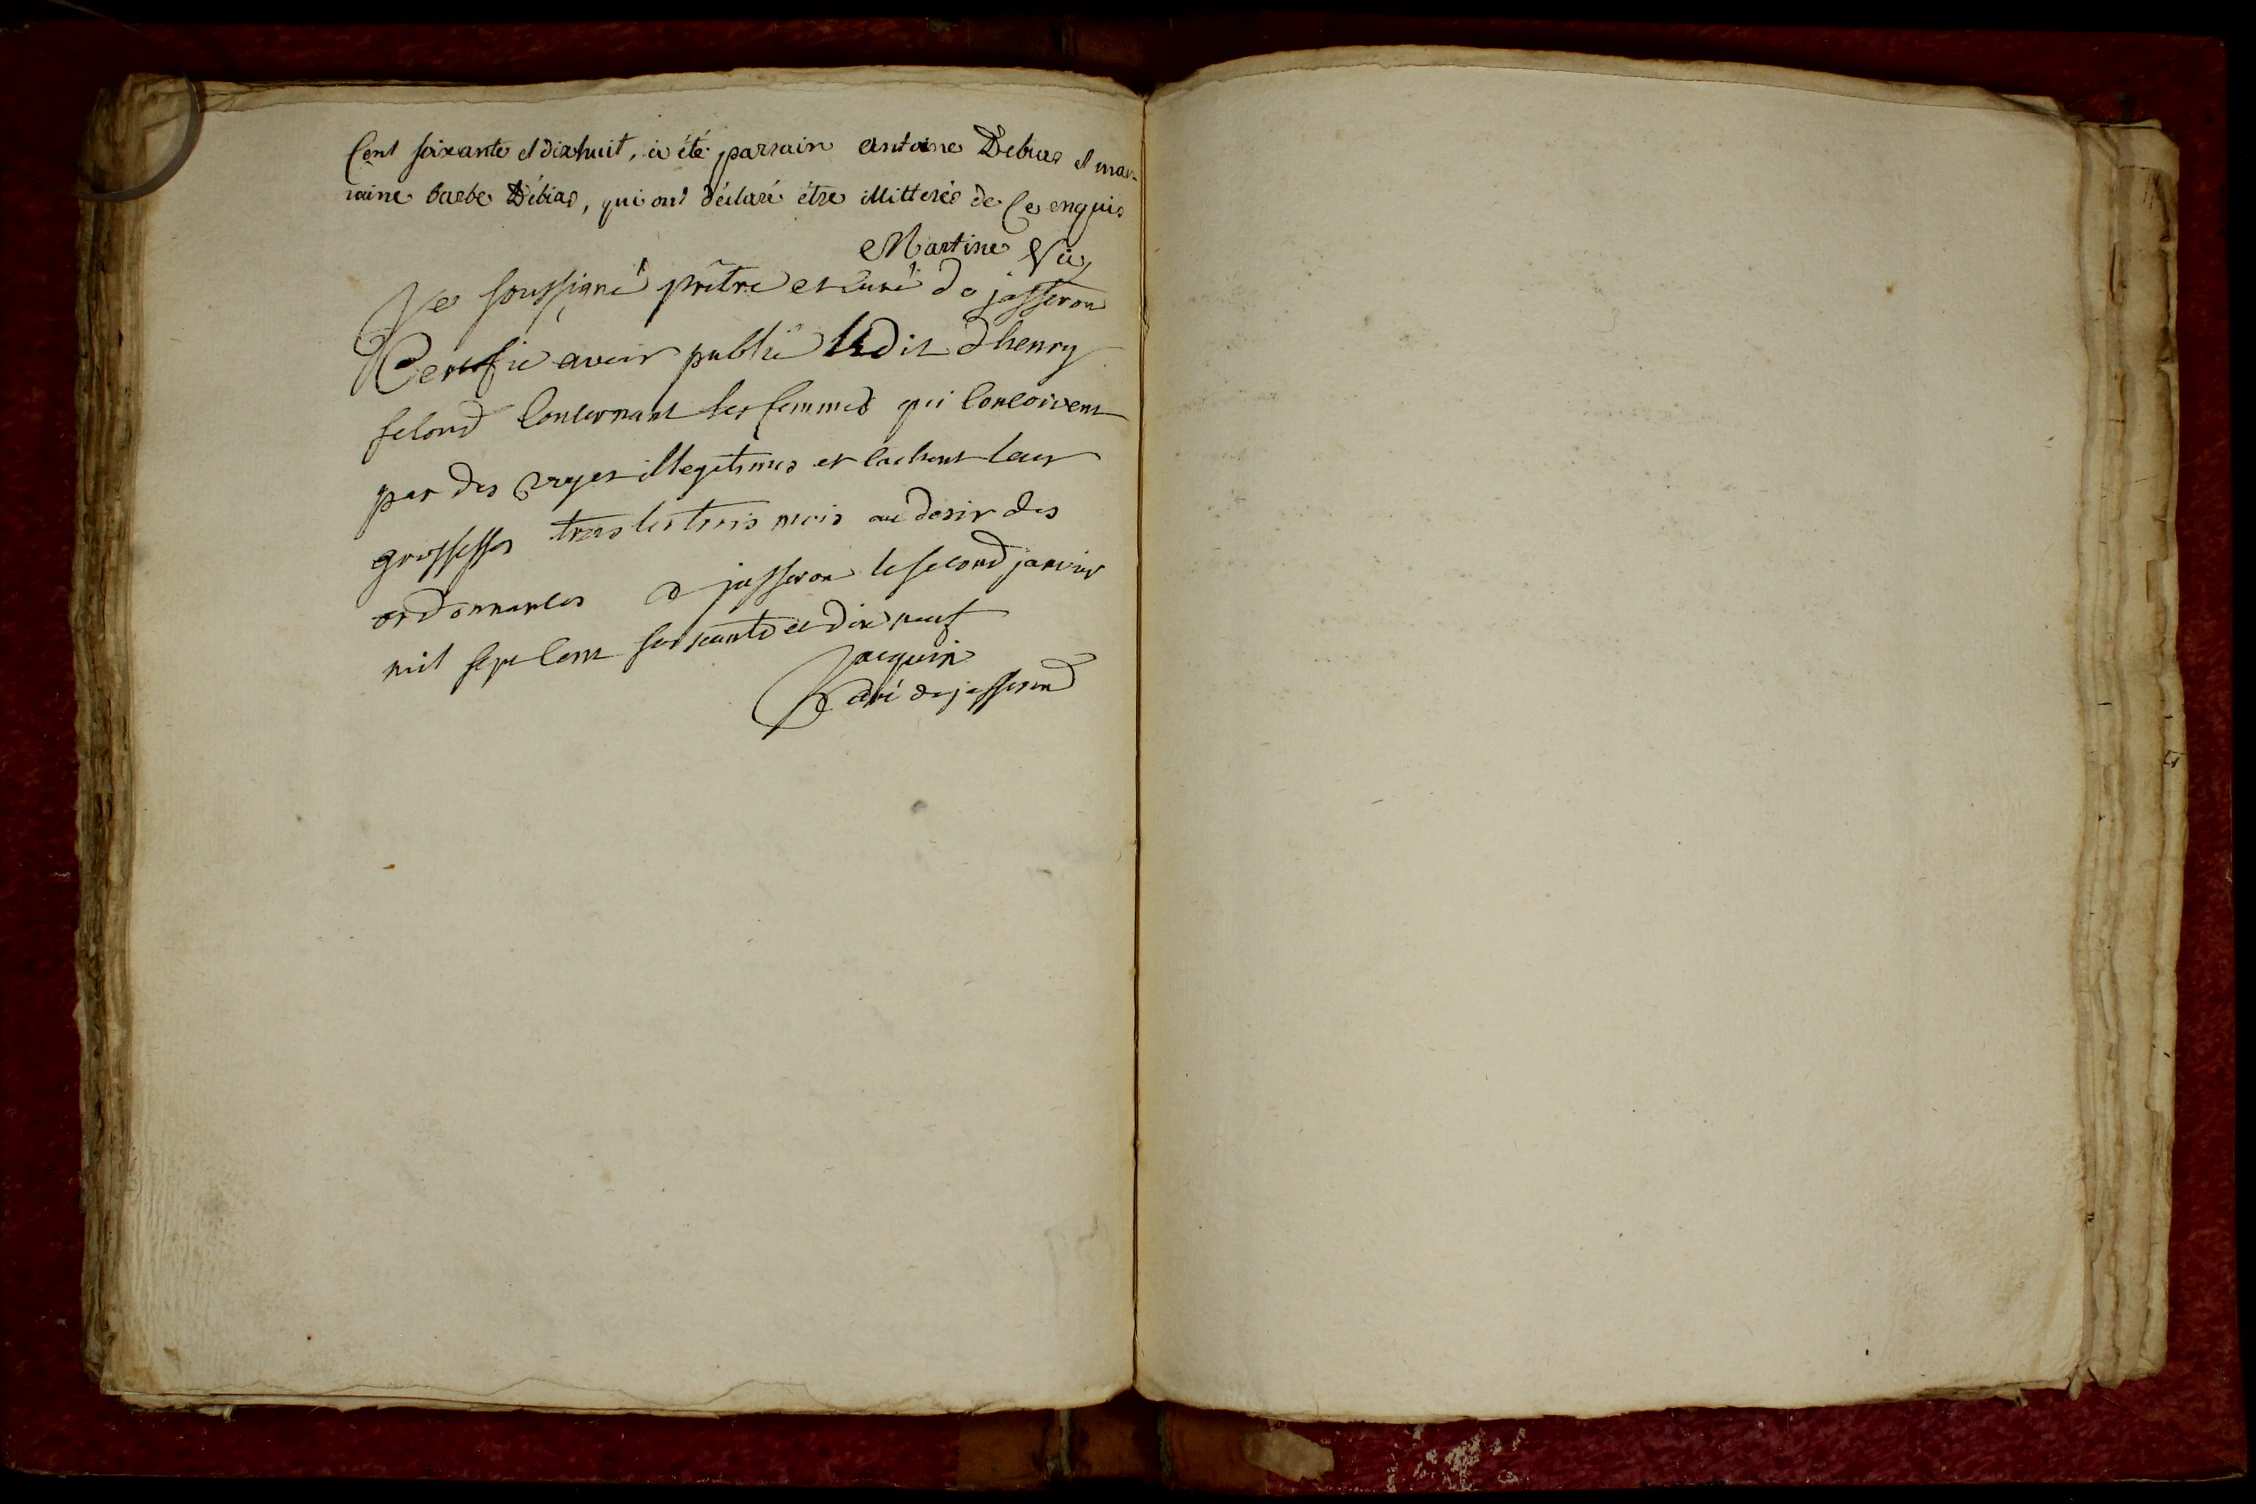 Cent soixante et dixhuit, a été parrain antoine Debias et mar-
raine barbe Débias, qui ont déclaré étre illitterés de Ce enquis
Martine Vic
Je soussigné prêtre et curé de jasseron
Certifie avoir publié lédit dhenry
second Concernant les femmes qui Conçoivent
par des voyes illegitimes et cachent leur
grossesses tous les trois mois au desir des
ordonnances a jasseron le second janvier
mil sept Cent soixante et dix neuf
Jacquin
curé de jasseron